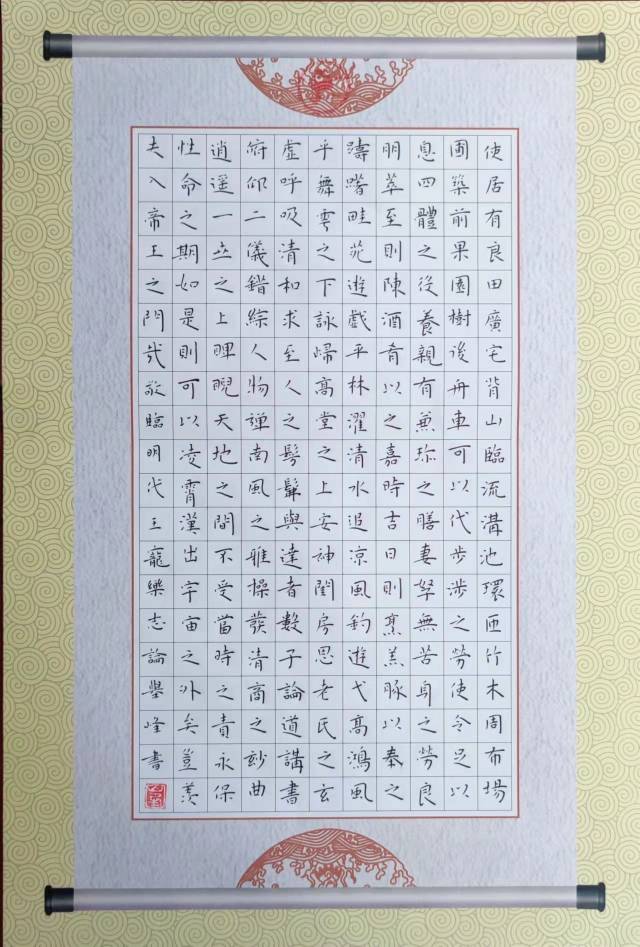 使居有良田廣宅背山臨流溝池環匝竹木周布場
圃築前果園樹後舟車可以代步涉之勞使令足以
息四體之役養親有兼珍之膳妻孥無苦身之勞良
明萃至則陳酒肴以之嘉時吉日則烹羔豚以奉之
躊躇畦苑遊戲平林濯清水追涼風釣遊弋高鴻風
乎舞雩之下詠歸高堂之上安神閨房思老氏之玄
虛呼吸清和求至人之髣髴與達者數子論道講書
俯仰二儀錯綜人物彈南風之雅操發清商之妙曲
逍遙一世之上睥睨天地之間不受當時之責永保
性命之期如是則可以凌霄漢出宇宙之外矣豈羨
夫入帝王之門哉敬臨明代王寵樂志論舉峰書